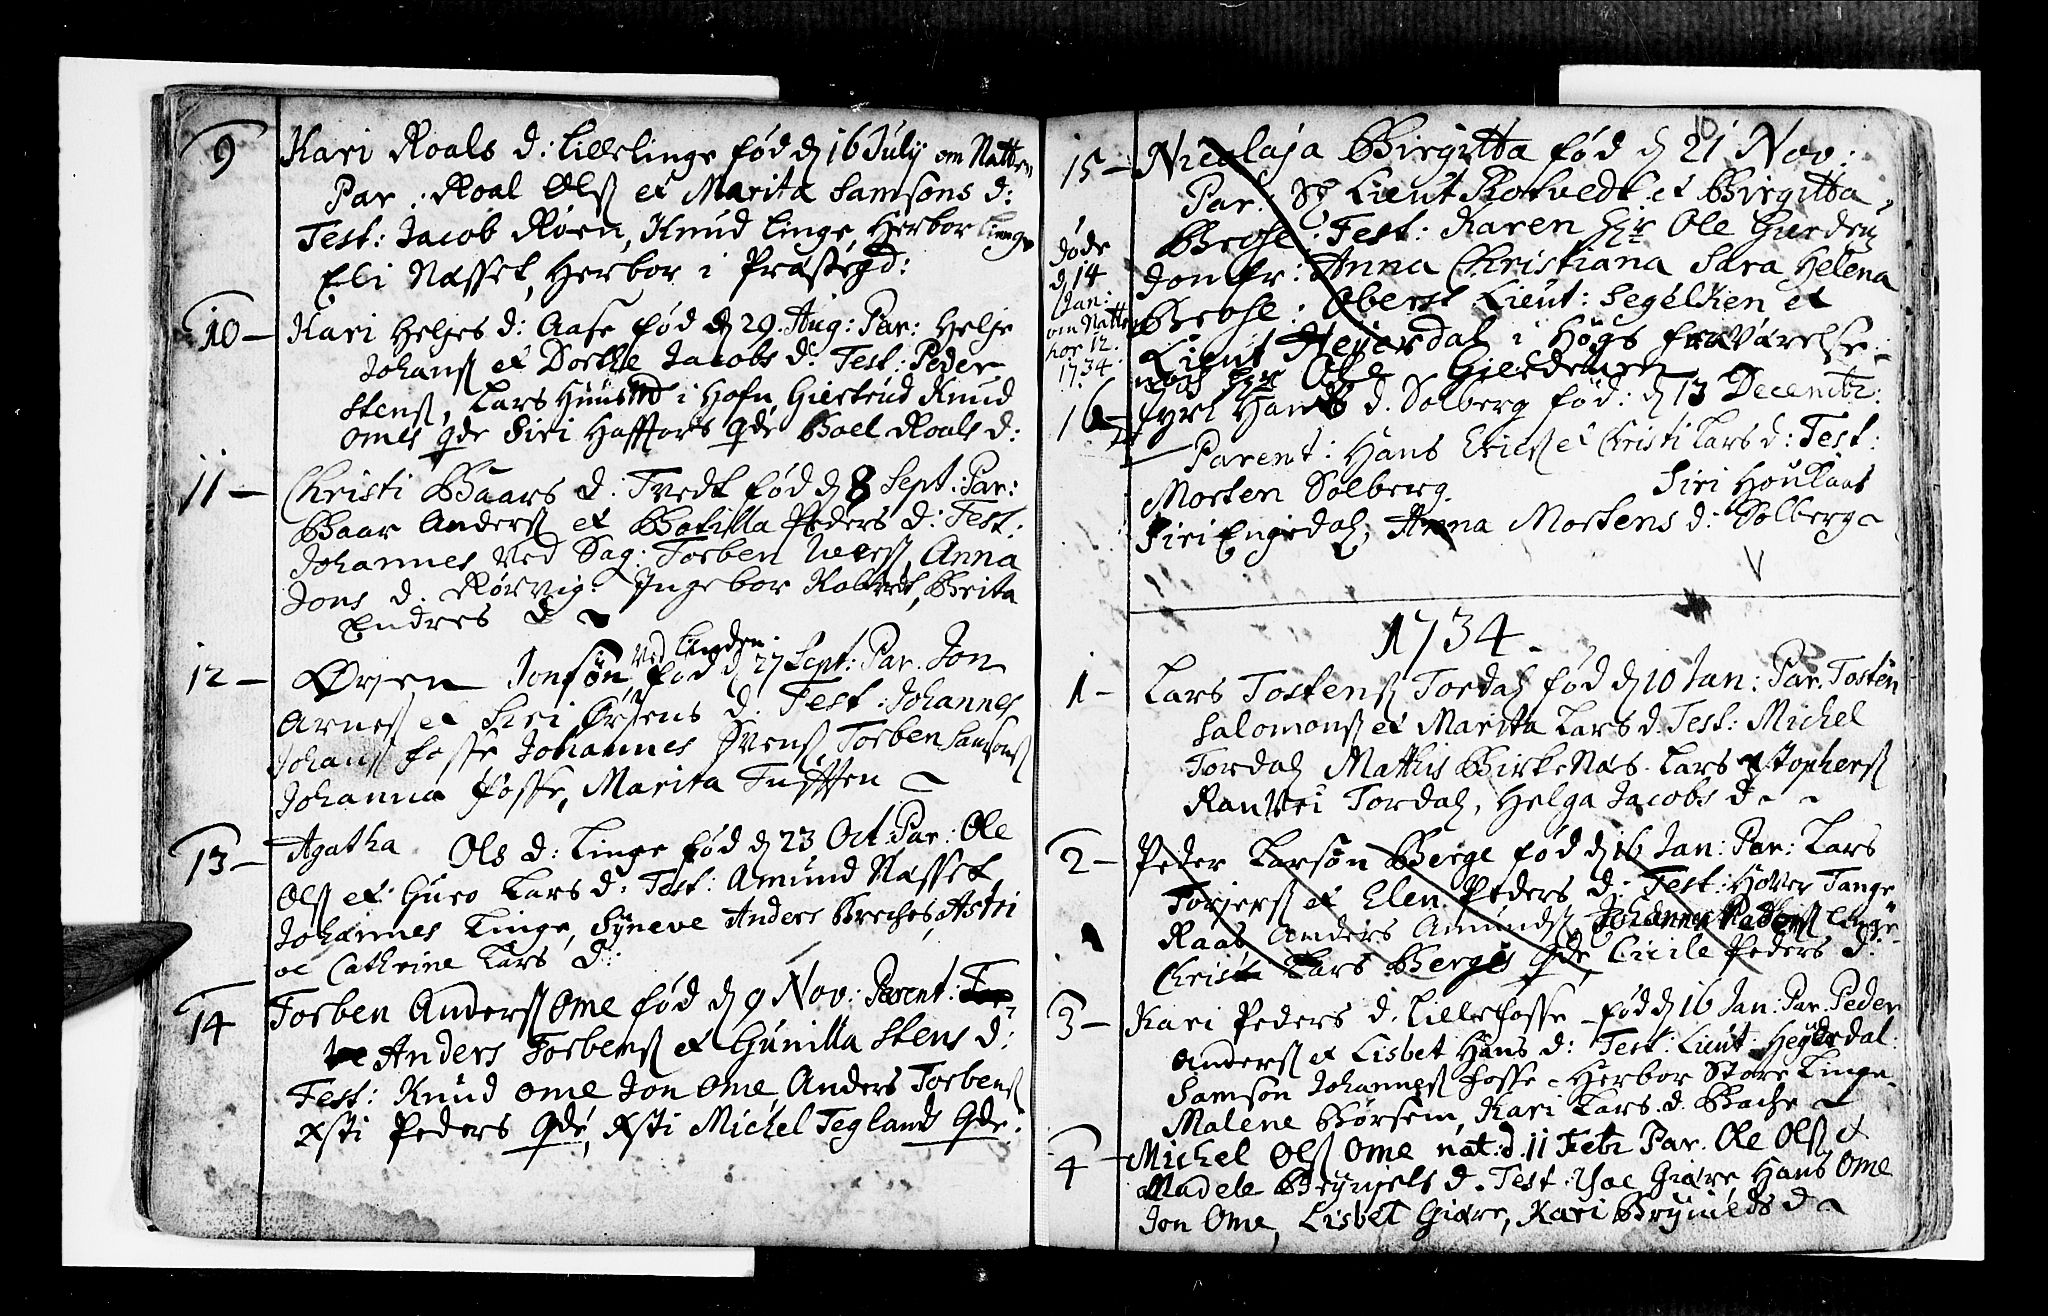 9 Kari Roals d: Lillelinge fød d 16 July om Natten
Par: Roal Ols et Marita Samsons d:
Test: Jacob Røen, Knud Linge, Herbor Linge
Eli Næsset, Herbor i Præstegd:
10 - Kari Heljes d: Aase fød d 29. Aug: Par: Helje
Johans et Dorthe Jacobs d: Test: Peder
Stens, Lars i Hofn Giertrud Knud
Omes qde Siri Haffors qde Boel Roals d:
11 - Christi Baars d: Tvedt fød d 8 Sept: Par:
Baar Anders et Botilla Peders d: Test:
Johannes ved Sag: Torben Anna
Jons d. Rørvig: Ingebor Brita
Endres d
ved Linden
12 - Ørjen Jonsøn fød d 27 Sept: Par. Jon
Arnes et Siri Ørjens d. Test: Johannes
Johans Fosse Johannes Ivens Torben Samsons
Johanna Fosse, Marita
13 - Agatha Ols d: Linge fød d 23 Oct: Par: Ole
Ols et Guro Lars d: Test: Amund Næsset
Johannes Linge, Syneve Anders Astri
oc Cathrine Lars d:
14 Torben Anders Ome fød d 9 Nov: Parent:
Anders Torbens et Gunilla Stens d:
Test: Knud Ome Jon Ome, Anders Torbens
Xsti Peders Qde, Xsti Michel Teglands Qde.
10
15 - Nicolaja Birgitta fød d 21 Nov:
Par. Sr Lieut Rotvedt et Birgitta
Test: Karen Ole
Jomfr: Anna Christiana Sara Helena
Oberst Lieut: et
Lieut Heierdal i Høgs fraværelse.
Ole
Døde
d 14
Jan:
om Natten
hor 12.
1734.
16 - Hans d. Solberg fød: d 13 Decembr:
Parent: Hans Erics et Christi Lars d: Test:
Morten Solberg. Siri
Siri Engedal, Anna Mortens d: Solberg
1734.
1 - Lars Tostens Tordal fød d 10 Jan: Par. Tosten
Salomons et Marita Lars d. Test: Michel
Tordal Mathis Birkenæs. Lars Xstophers
Ranvei Tordal, Helga Jacobs d
2 - Peder Larsøn Berge fød d 16 Jan: Par: Lars
Torjers et Elen Peders d: Test: Hover Tange
Raas Anders Amunds, Johannes Linge
Christi Lars Berges Qde, Cicile Peders d.
3 - Kari Peders d. Lillefosse fød d 16 Jan: Par. Peder
Anders et Lisbet Hans d: Test: Lieut Heyerdal:
Samson Johannes Fosse Herbor Store Linge
Malene Børsem, Kari Lars d. Bache
4 - Michel Ols Ome nat: d. 11 Febr Par. Ole Ols et
Madele Brynjels d. Test: Giære Hans Ome
Jon Ome, Lisbet Giære, Kari d